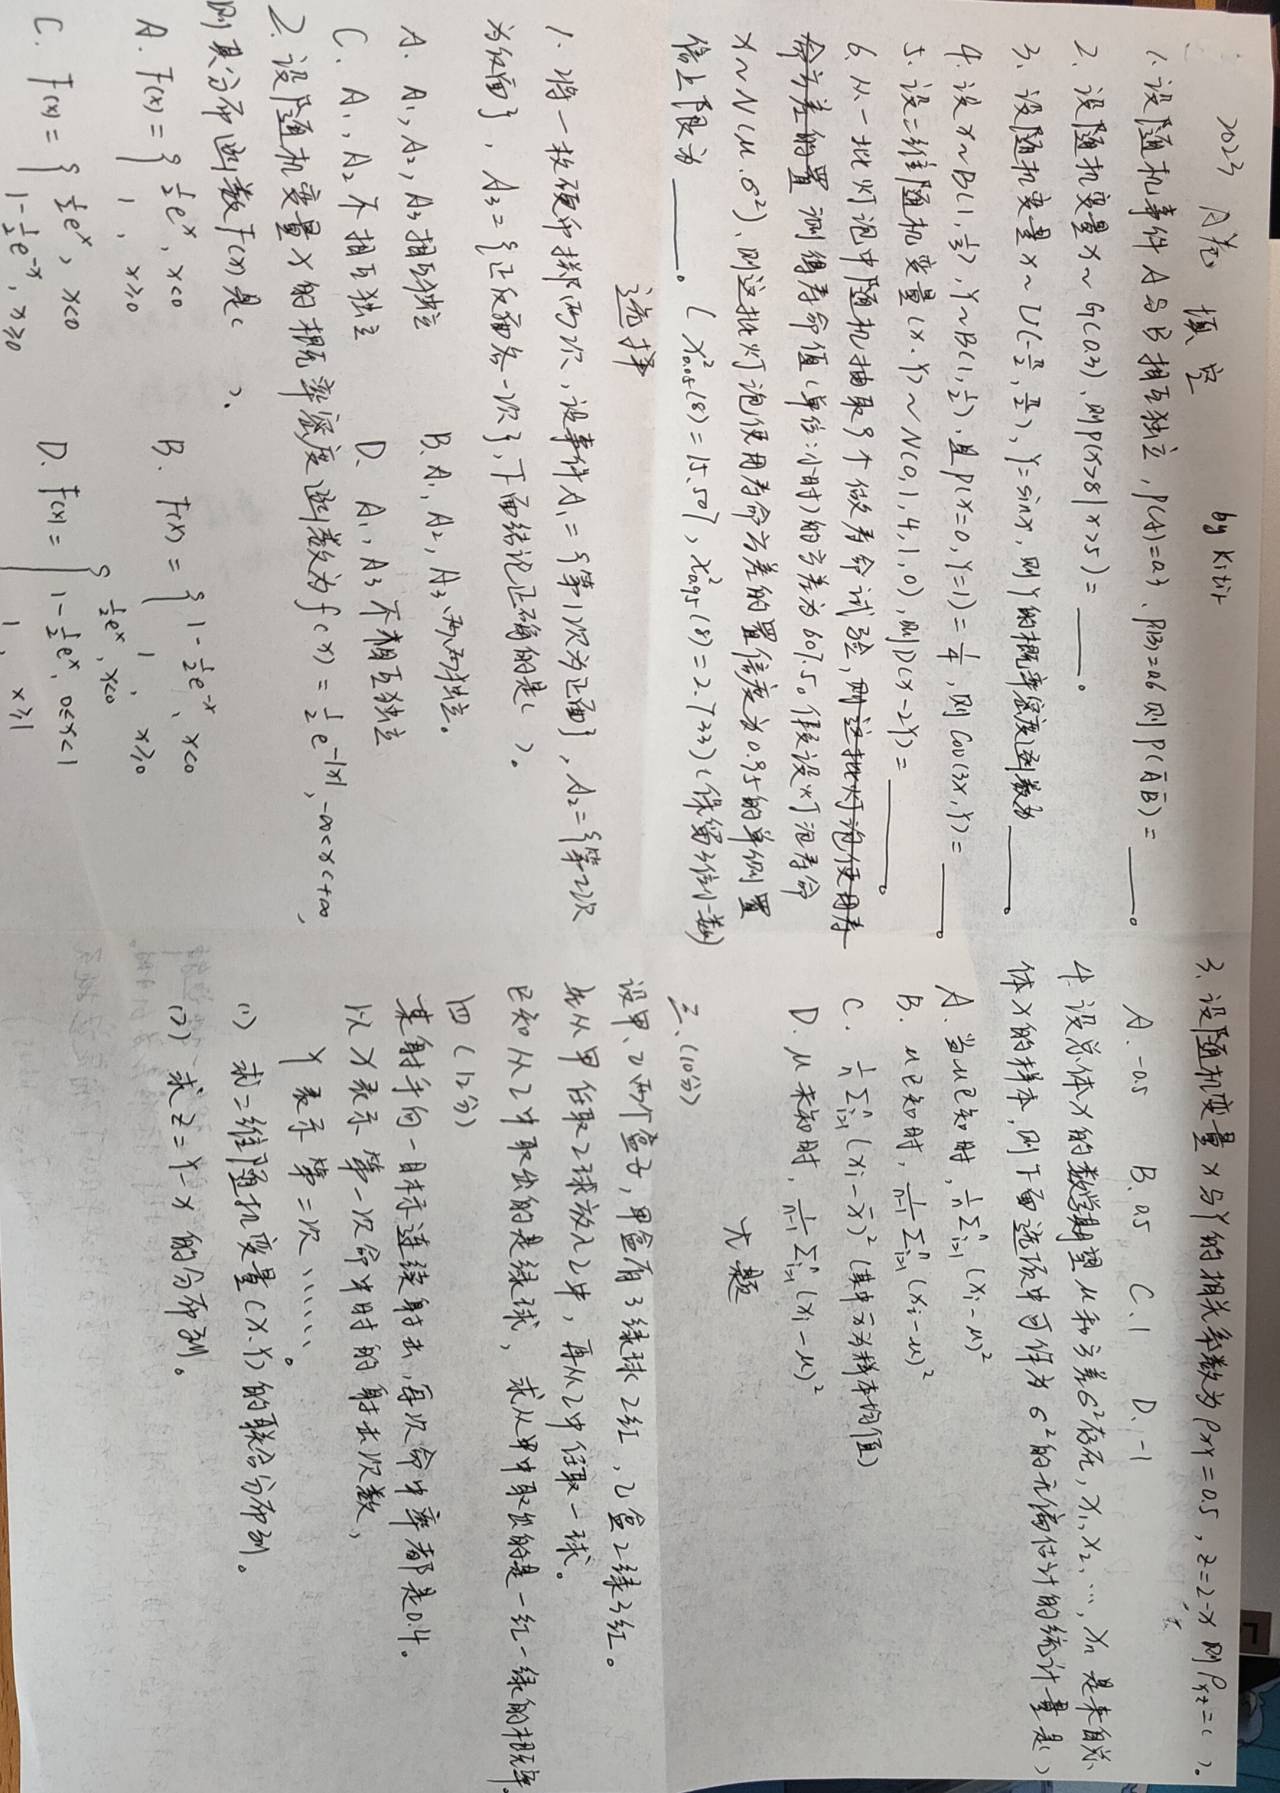 2023 A卷 填空 by Kitit
1. 设随机事件A与B相互独立, P(A)=0.3、P(B)=0.6 则P(A̅B̅)=____。
2. 设随机变量X~G(0.3)、则P(X>8|X>5)=____。
3. 设随机变量X~U(-π/2, π/2), Y=sinX, 则Y的概率密度函数为____。
4. 设X~B(1,1/3), Y~B(1,1/2), 且P(X=0,Y=1)=1/4, 则Cov(3X,Y)=____。
5. 设二维随机变量(X,Y)~N(0,1,4,1,0), 则D(X-2Y)=____。
6. 从一批灯泡中随机抽取9个做寿命试验, 则这批灯泡使用寿
命方差的置 测得寿命值(单位:小时)的方差为607.5, 假设灯泡寿命
X~N(μ,σ²)、则这批灯泡使用寿命方差的置信度为0.95的单侧置
信上限为____。(χ²0.05(8)=15.507, χ²0.95(8)=2.733)(保留3位小数)
选择
1. 将一枚硬币掷两次, 设事件A₁={第1次为正面}, A₂={第2次
为反面}, A₃={正反面各一次}, 下面结论正确的是( )。
A. A₁, A₂, A₃相互独立 B. A₁, A₂, A₃两两独立。
C. A₁, A₂不相互独立 D. A₁, A₃不相互独立
2. 设随机变量X的概率密度函数为f(x)=1/2e^-|x|, -∞<x<+∞,
则其分布函数F(x)是( )。
A. F(x)={1/2e^x, x<0 B. F(x)={1-1/2e^-x, x<0
1, x≥0 1, x≥0
C. F(x)={1/2e^x, x<0 D. F(x)={1/2e^x, x<0
1-1/2e^-x, x≥0 1-1/2e^x, 0≤x<1
1, x≥1
3. 设随机变量X与Y的相关系数为ρXY=0.5, Z=2-X 则ρYZ=( )。
A. -0.5 B. 0.5 C. 1 D. -1
4. 设总体X的数学期望μ和方差σ²存在, X₁, X₂, …, Xn是来自总
体X的样本, 则下面选项中可作为σ²的无偏估计的统计量是( )
A. 当μ已知时, 1/n Σⁿi=1 (Xi-μ)²
B. μ已知时, 1/(n-1) Σⁿi=1 (Xi-μ)²
C. 1/n Σⁿi=1 (Xi-X̅)² (其中X̅为样本均值)
D. μ未知时, 1/(n-1) Σⁿi=1 (Xi-μ)²
大题
三、(10分)
设甲、乙两个盒子, 甲盒有3绿球2红, 乙盒2绿3红。
先从甲任取2球放入乙中, 再从乙中任取一球。
已知从乙中取出的是绿球, 求从甲中取出的是一红一绿的概率.
四 (12分)
某射手向一目标连续射击, 每次命中率都是0.4。
以X表示第一次命中时的射击次数,
Y表示第二次、、、、、。
(1) 求二维随机变量(X,Y)的联合分布列。
(2) 求Z=Y-X的分布列。